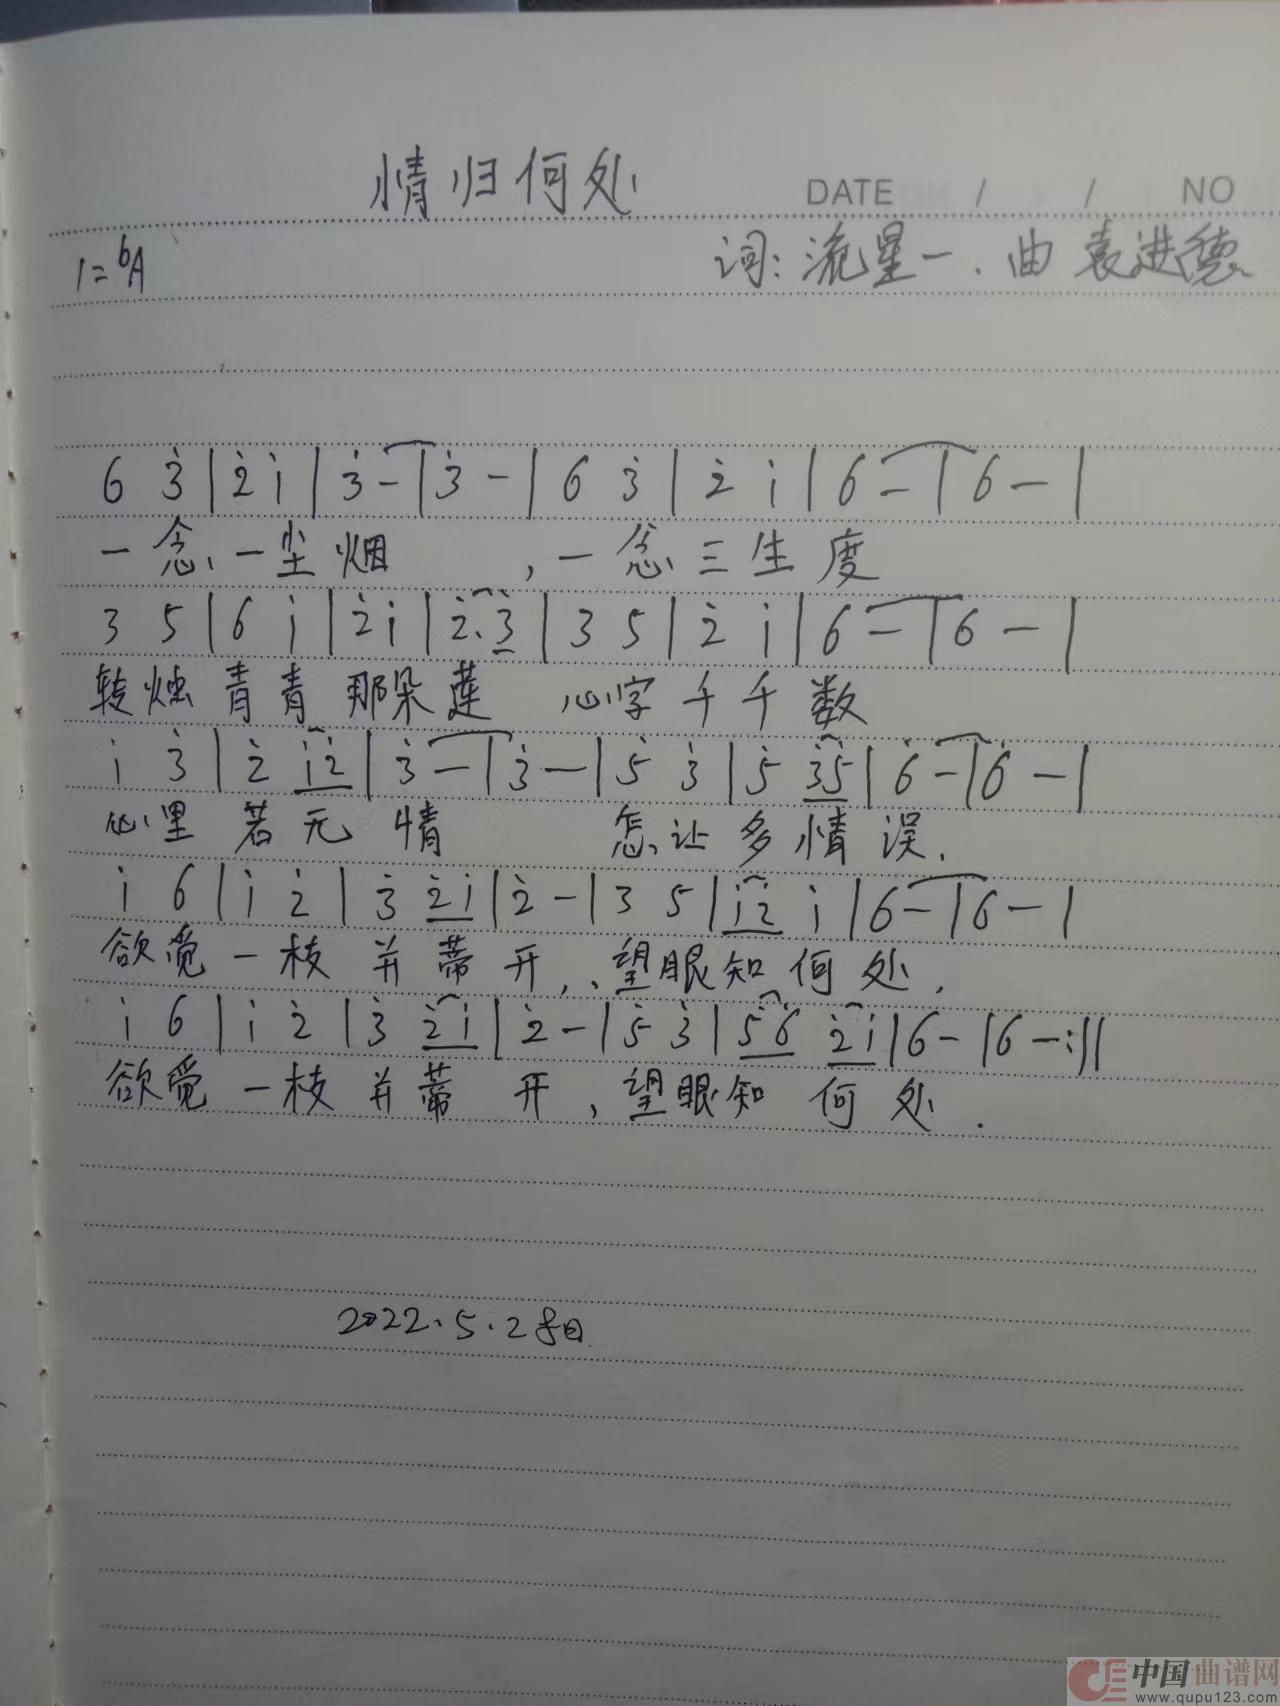 情归何处
DATE / / NO
1=♭A
词:流星一.曲 袁进德
6 3̇ | 2̇ 1̇ | 3̇ - | 3̇ - | 6 3̇ | 2̇ 1̇ | 6 - | 6 - |
一念一尘烟 ,一念三生度
3 5 | 6 1̇ | 2̇ 1̇ | 2̇. 3̇ | 3 5 | 2̇ 1̇ | 6 - | 6 - |
转烛青青那朵莲 心字千千数
1̇ 3̇ | 2̇ 1̇2̇ | 3̇ - | 3̇ - | 5̇ 3̇ | 5̇ 3̇5̇ | 6̇ - | 6̇ - |
心里若无情 怎让多情误.
1̇ 6 | 1̇ 2̇ | 3̇ 2̇1̇ | 2̇ - | 3 5 | 1̇2̇ 1̇ | 6 - | 6 - |
欲觅一枝并蒂开,望眼知何处.
1̇ 6 | 1̇ 2̇ | 3̇ 2̇1̇ | 2̇ - | 5̇ 3̇ | 5̇6̇ 2̇1̇ | 6 - | 6 - :||
欲觅一枝并蒂开,望眼知何处.
2022.5.2
中国曲谱网
www.qupu123.com